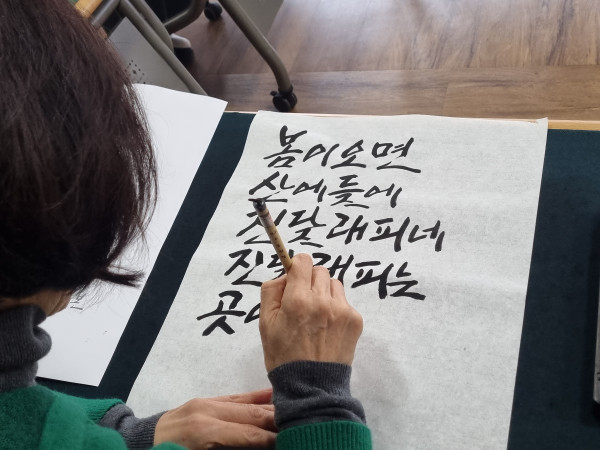 봄이오면
산에들에
진달래피네
진달래피는
곳에